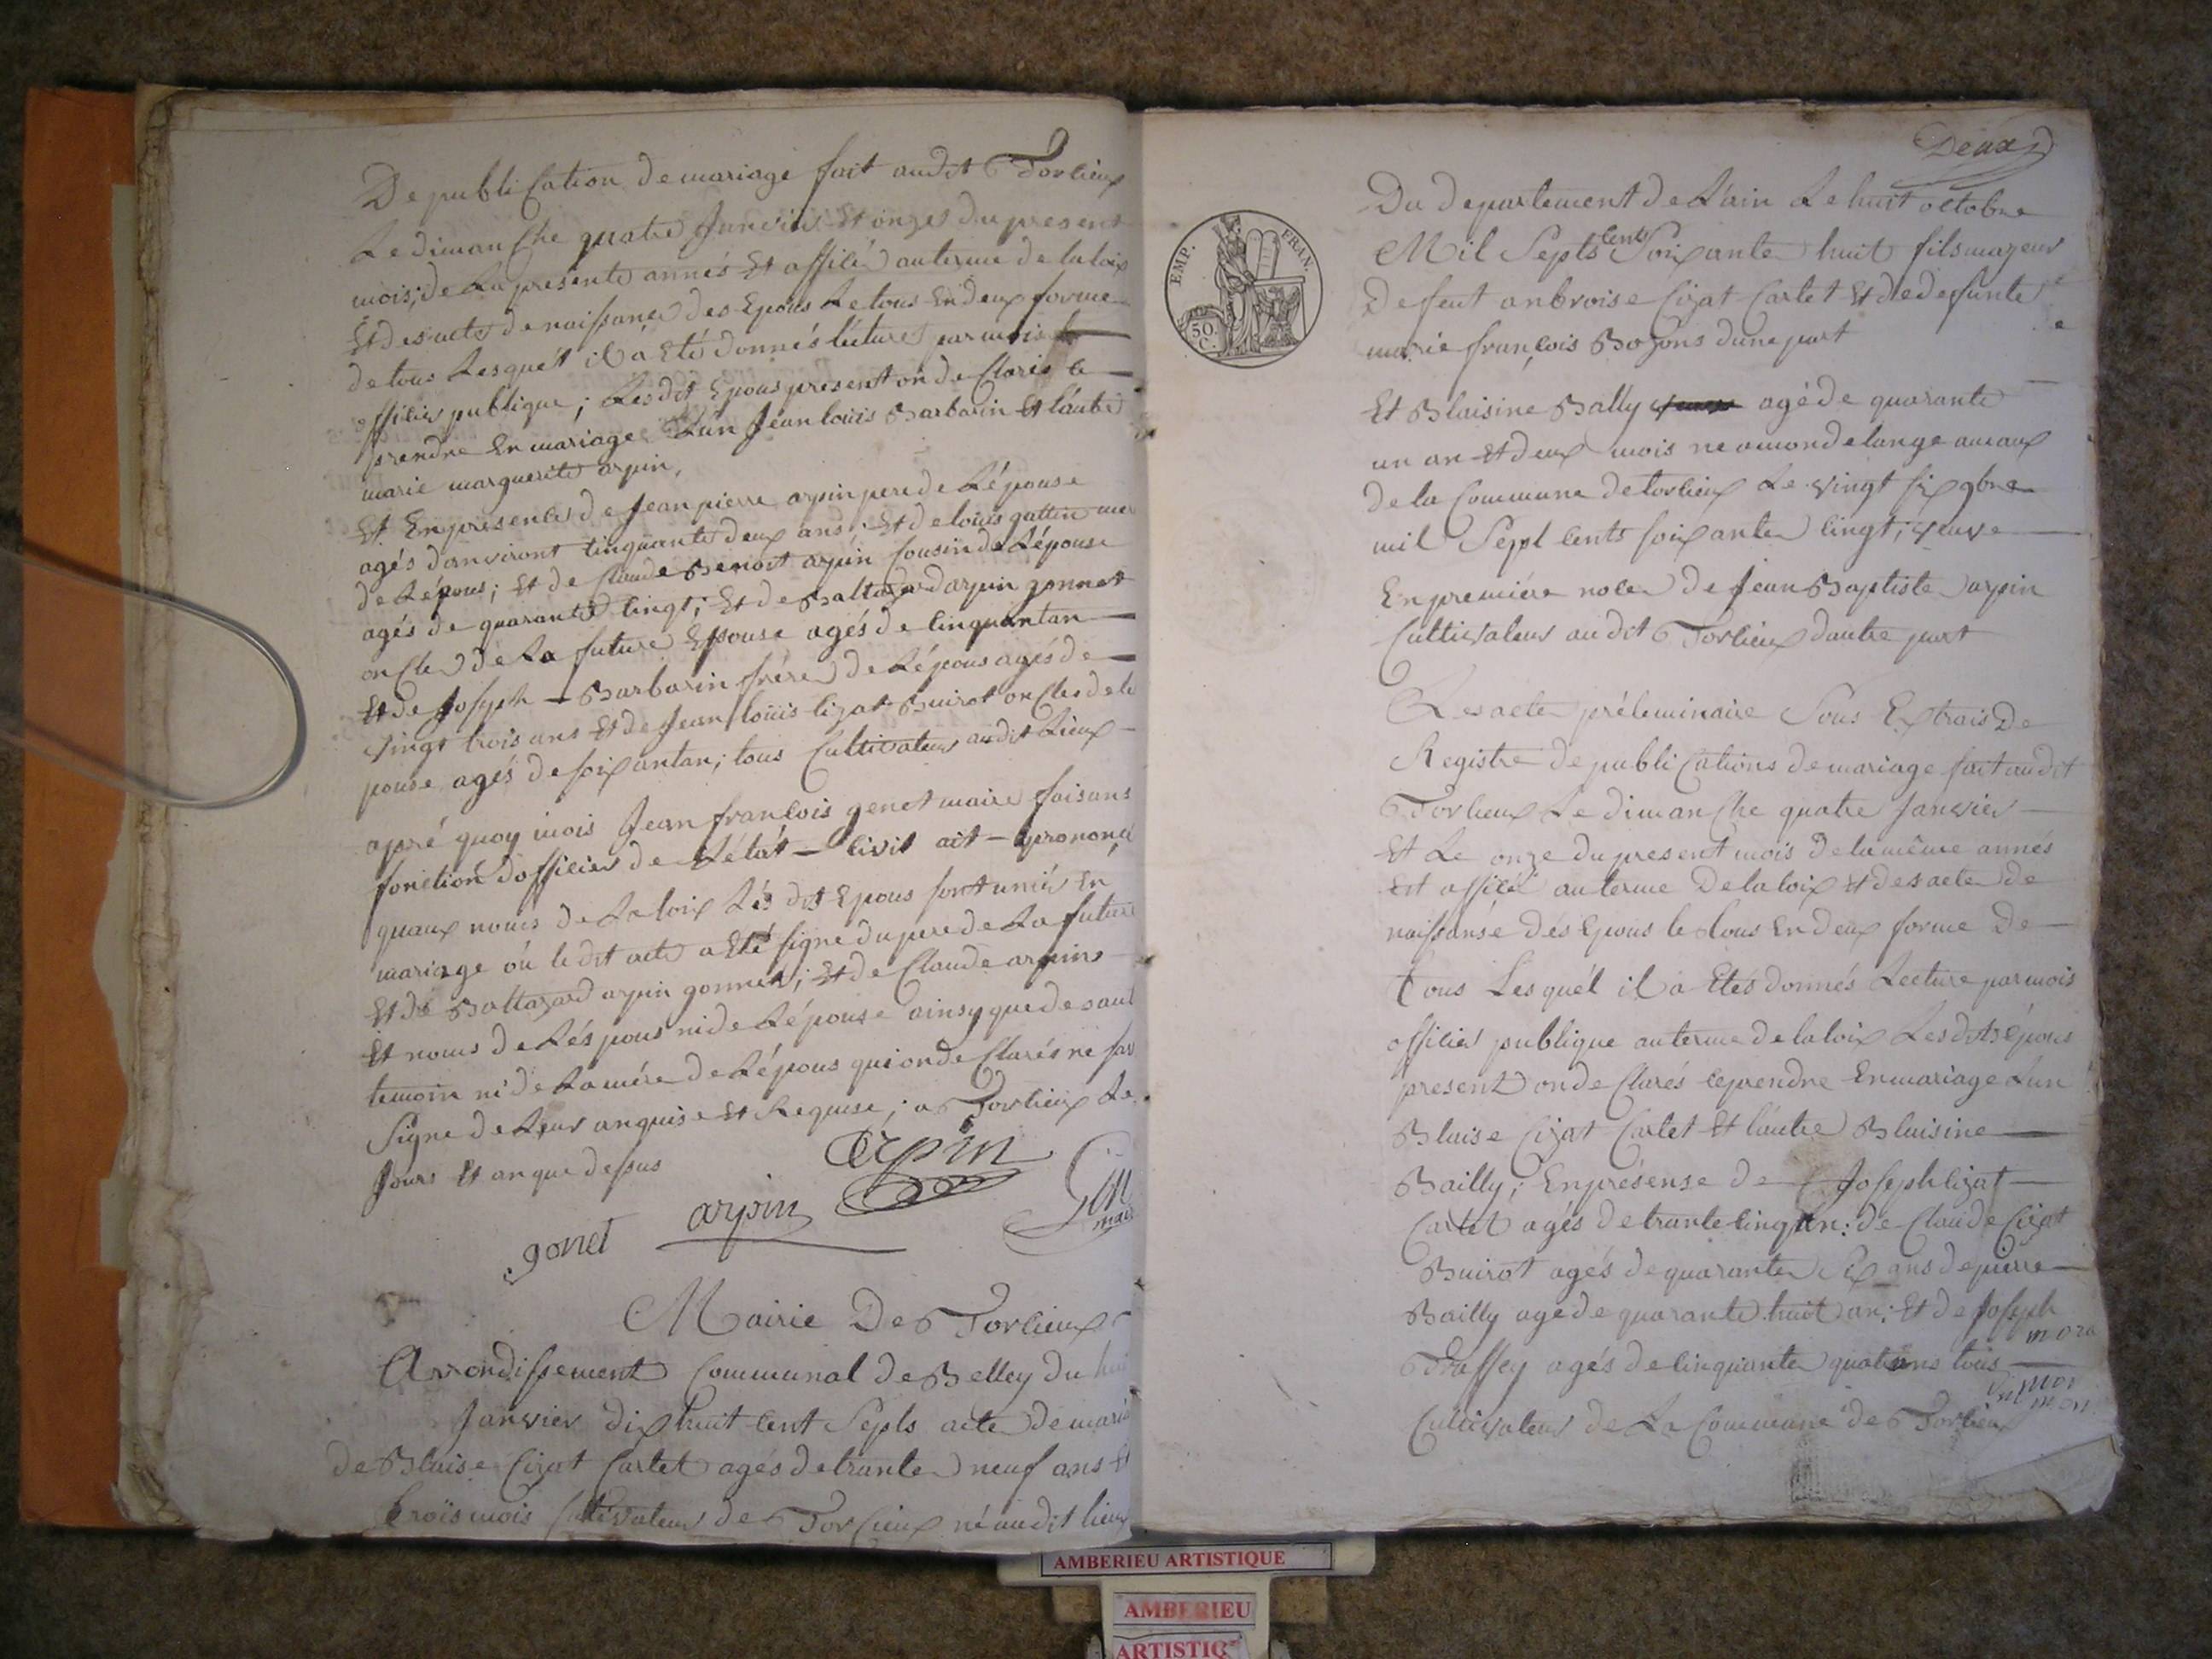 De publication de mariage fait audit Torcieux
Le dimanche quatre Janvier Et onzes du present
mois; de La presente annés Et affiché au terme de la loix
Et des acte de naissance des Epous Le tous En deux forme
de tous Lesquél il a Eté donnés lécture par mois
officier publique; Lesdit Epous present on de Claris ce
prendre En mariage L'un Jéan louis Barbarin Et láutre
marie marguerite arpin,
Et En présences de Jean pierre arpin pere de Lépouse
agés d'anviront cinquante deux ans; Et de louis gattin
de Lépous; Et de Claude Benoit arpin Cousin de Lépouse
agés de quarante cinqt; Et de Baltazard arpin gonnet
oncle de La future Epouse agés de cinquantan
Et de Joseph Barbarin frére de Lépous agés de
vingt trois ans Et de Jean louis Cizat Buirot oncles de le
pouse agés de soixantan; tous Cultivateur audit Lieux
apré quoy mois Jean françois genet maire faisans
fonction dofficier de Létát civit ait prononcé
quaux noms de La loix Lés dit Epous sont uniés En
mariage oú le dit acte a Eté signe du pere de La future
Et de Baltazard arpin gonnet; Et de Claude arpin
Et nons de Lés pous ni de Lépouse ainsy que de saut
temoin ni de La mére de Lépous qui on de Clarés ne sav
Signe de Leur anquise Et Requise; a Torcieux Le
Jours Et an que dessus
arpin
gonet arpin
Mairie De Torcieux
Arrondissement Communal de Belley du
Janvier dix huit cent Septs acte de maria
de Blaise Cizat Cartet agés de trante neuf ans Et
trois mois Cultivateur de Torcieux né audit lieux
Deux
Du departement de L'ain Le huit octobre
Mil Septs cent Soixante huit fils majeur
De feut anbroise Cizat Cartet Et de defunte
marie françois Bozons dune part
EMP. FRAN.
50. C.
Et Blaisine Bally agé de quarante
un an Et deux mois ne a mondelange
de la Commune de torcieux Le vingt six 9bre
mil Sept cents soixante cingt; veuve
En premiére noce de Jean Baptiste arpin
Cultivateur audit Torcieux dautre part
Les acte préleminaire Sous Extrais De
Registre de publications de mariage fait audit
Torcieux Le dimanche quatre Janvier
Et Le onze du present mois de la même annés
Est affiché au terme De la loix Et des acte de
naissánse dés Epous le tous En deux forme De
tous Lesquél il a Etés donnés Lecture par mois
officier publique au terme de la loix Lesdits épous
present on de Clarés ce prendre En mariage Lun
Blaise Cizat Cartet Et láutre Blaisine
Bailly; En présense de Joseph Cizat
Cartet agés de trante cinq an: de Claude Cizat
Buirot agés de quarante six ans de pierre
Bailly age de quarante huit an; Et de Joseph
Draffey agés de cinquante quatre ans tous
Cultivateur de La Commune de Torcieux
AMBERIEU ARTISTIQUE
AMBERIEU
ARTISTIQ